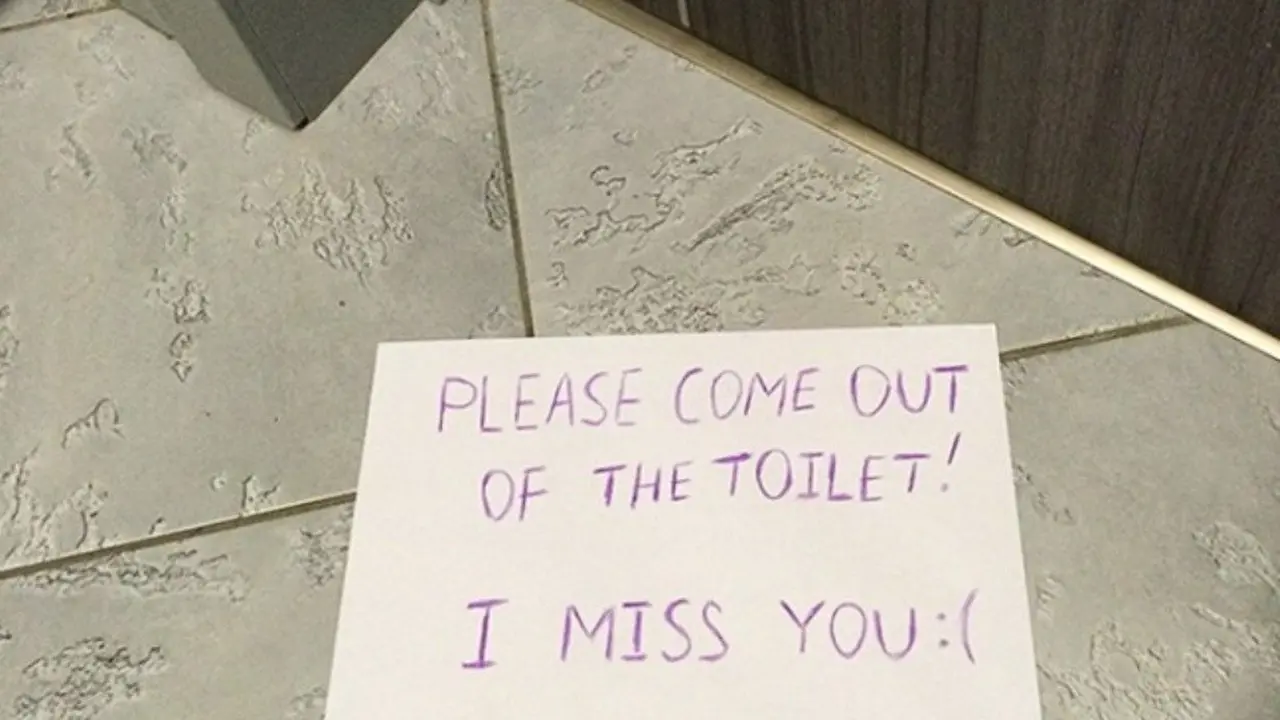 PLEASE COME OUT
OF THE TOILET!
I MISS YOU:(